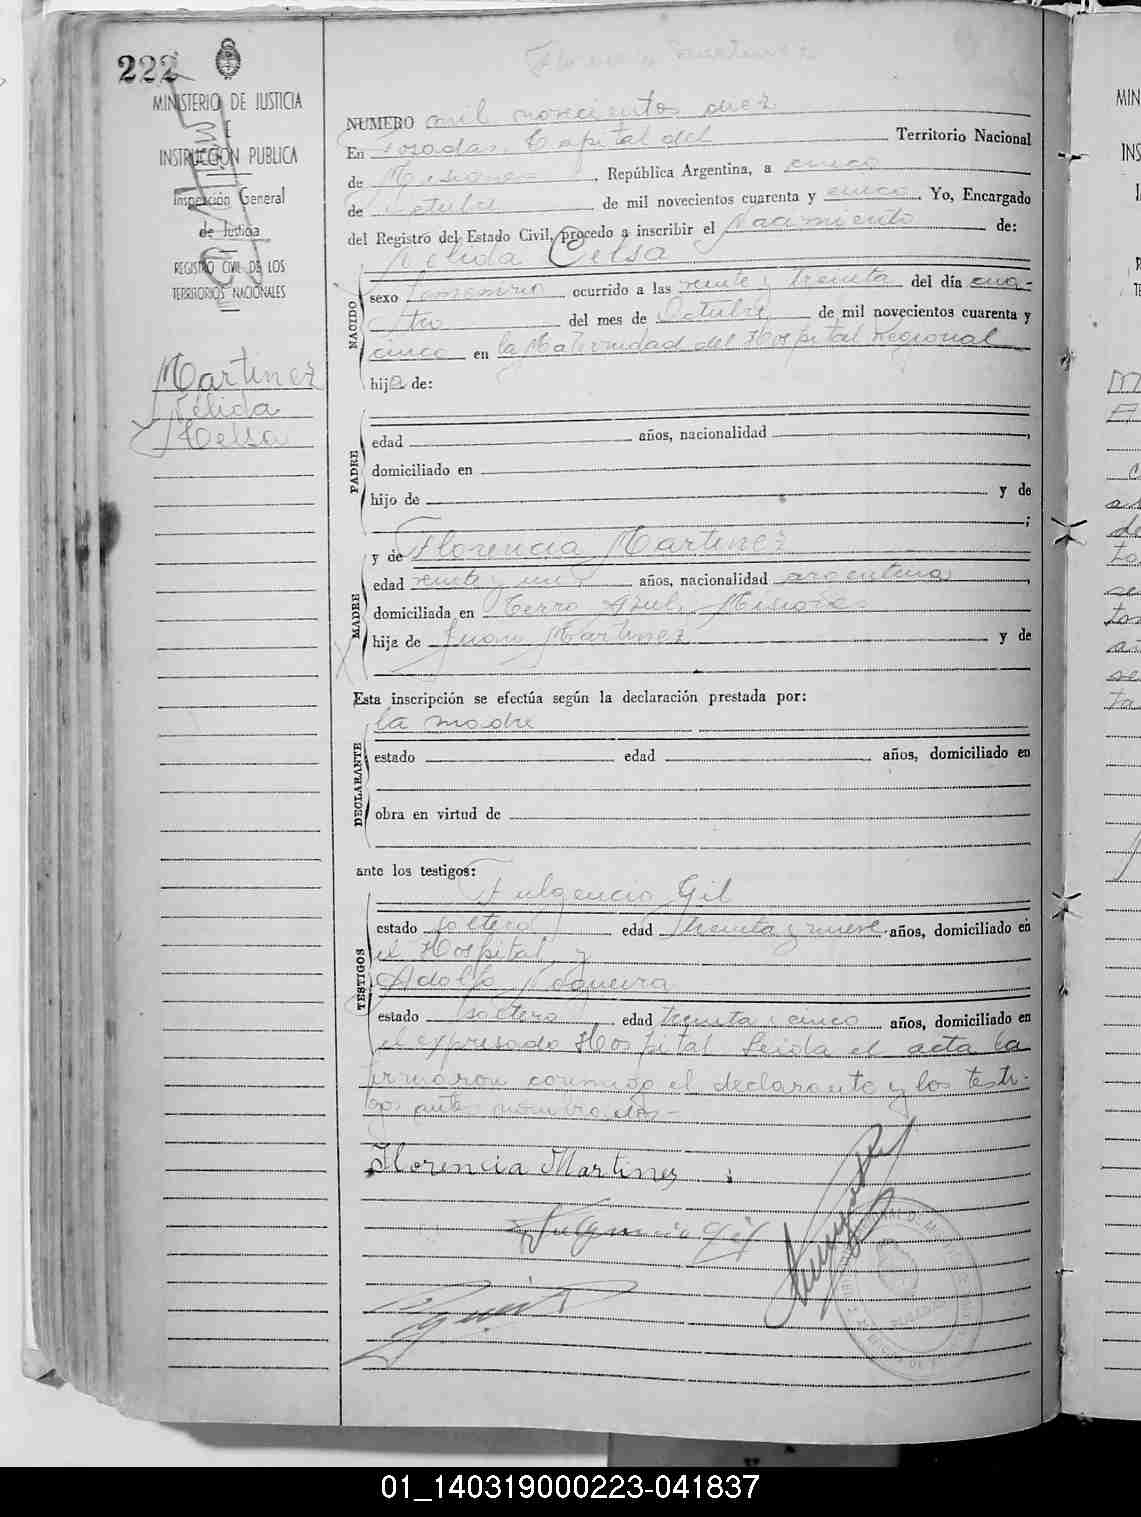 222
MINISTERIO DE JUSTICIA
E
INSTRUCCION PUBLICA
Inspección General
de Justicia
REGISTRO CIVIL DE LOS
TERRITORIOS NACIONALES
Martinez
Nélida
Celsa
Florencia Martinez
NUMERO mil novecientos diez
En Posadas, Capital del Territorio Nacional
de Misiones, República Argentina, a cinco
de octubre de mil novecientos cuarenta y cinco. Yo, Encargado
del Registro del Estado Civil, procedo a inscribir el Nacimiento de:
Nélida Celsa
NACIDO
sexo femenino ocurrido a las veinte y treinta del día cua-
tro del mes de Octubre de mil novecientos cuarenta y
cinco en la Maternidad del Hospital Regional
hija de:
PADRE
edad años, nacionalidad ,
domiciliado en
hijo de y de
;
MADRE
y de Florencia Martinez
edad veinte y un años, nacionalidad argentina,
domiciliada en Cerro Azul, Misiones
hija de Juan Martinez y de
Esta inscripción se efectúa según la declaración prestada por:
la madre
DECLARANTE
estado edad años, domiciliado en
obra en virtud de
ante los testigos:
Fulgencio Gil
TESTIGOS
estado soltero edad treinta y nueve años, domiciliado en
el Hospital, y
Adolfo Nogueira
estado soltero edad treinta y cinco años, domiciliado en
el expresado Hospital. Leida el acta la
firmaron conmigo el declarante y los testi-
gos antes nombrados-
Florencia Martines
Fulgencio Gil
01_140319000223-041837